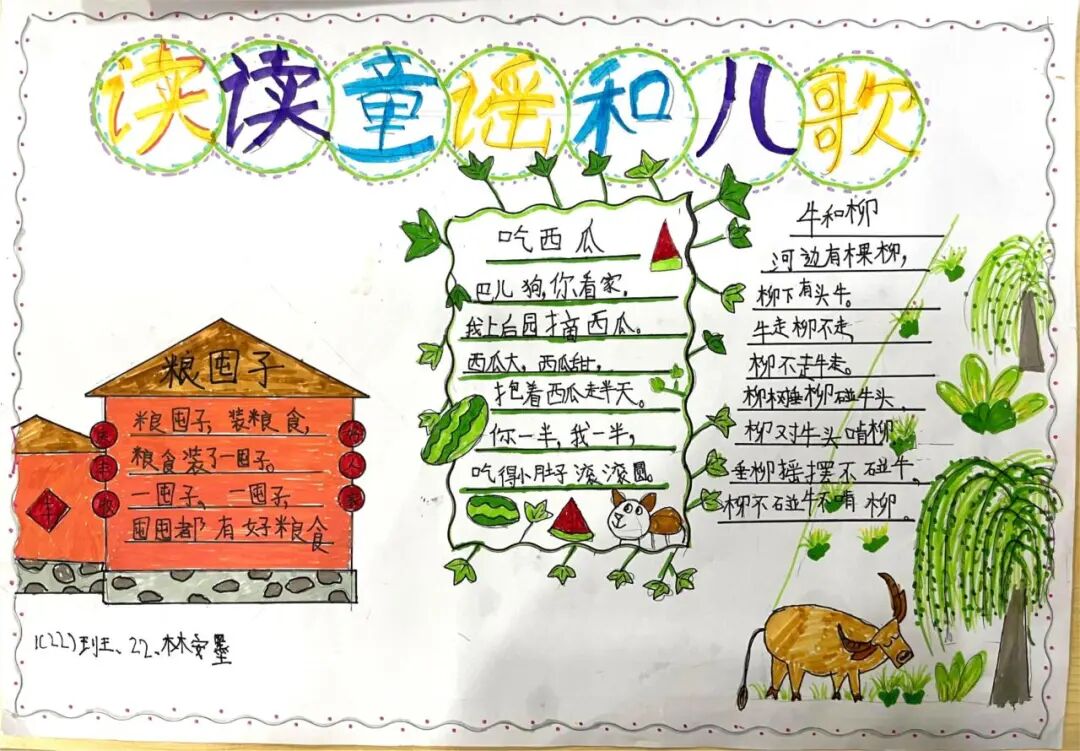 读读童谣和儿歌
粮囤子
粮囤子，装粮食，
粮食装了一囤子。
一囤子，一囤子，
囤囤都有好粮食
丰
人
家
牛
1(22)班、22、林安墨
吃西瓜
巴儿狗，你看家，
我上后园摘西瓜。
西瓜大，西瓜甜，
抱着西瓜走半天。
你一半，我一半，
吃得小肚子滚滚圆。
牛和柳
河边有棵柳，
柳下有头牛。
牛走柳不走，
柳不走牛走。
柳树垂柳碰牛头，
柳对牛头啃柳
垂柳摇摆不碰牛，
柳不碰牛不啃柳。